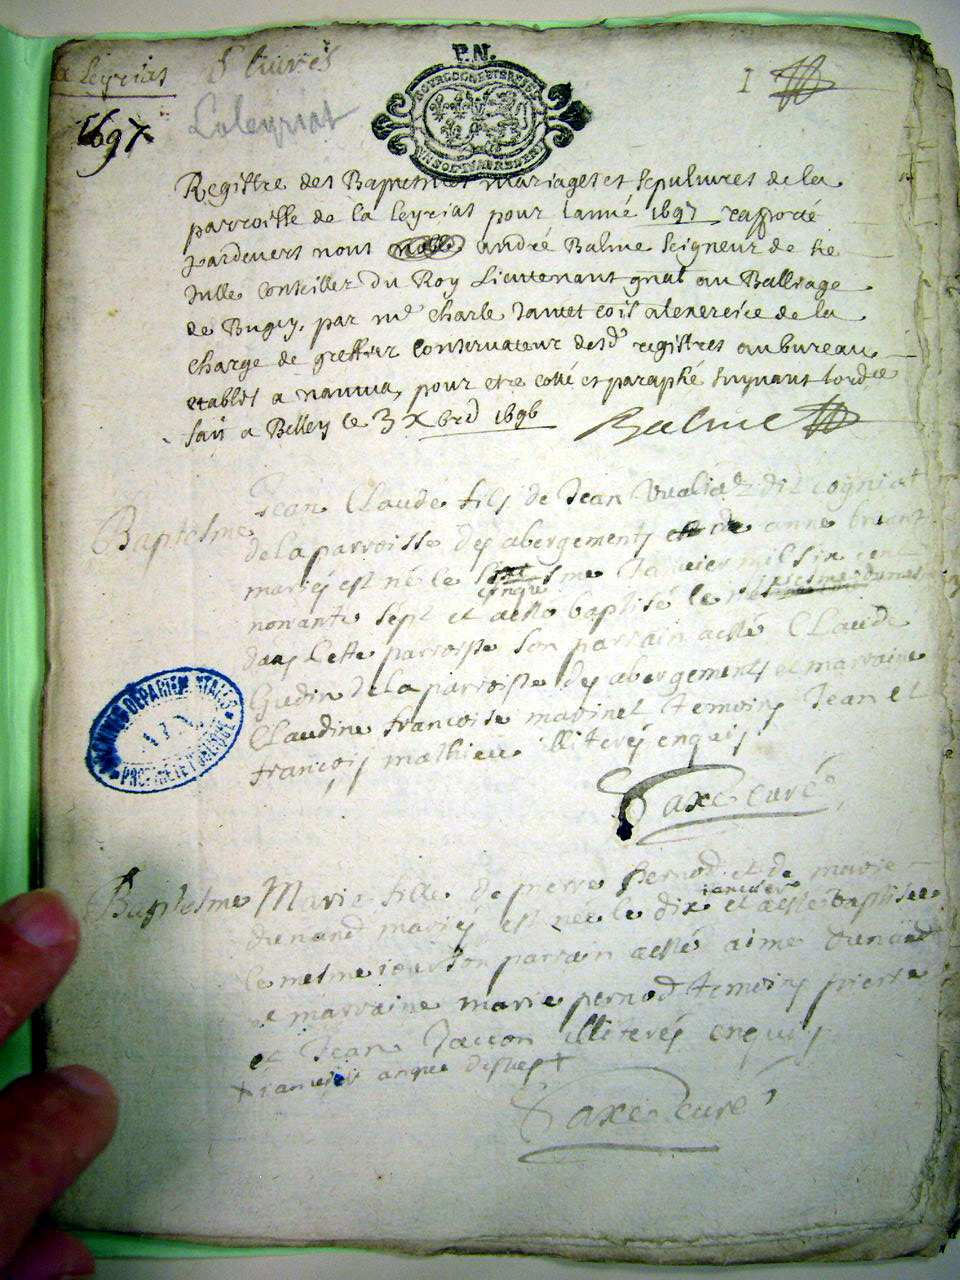 La Leyriat
1697
Laleyriat
P.N.
BOURGOGNE ET BRESSE
1
Registre des Baptesmes mariages et sepultures de la
parroisse de la Leyriat pour lanné 1697 rapporté
pardevers nous andré Balme Seigneur de Ste
Julle Conseiller du Roy Lieutenant gnal au Balliage
de Bugey, par me Charle Jantet cois a lexercice de la
charge de greffier conservateur desd registres au bureau
establit a nantua, pour etre cotté et paraphé suyvant lordce
fait a Belley le 3 Xbre 1696
Balme
Baptesme
Jean Claude fils de Jean dit Cogniat
de la parroisse des abergements et de anne
mariés est né le cinque sme janvier mil six cent
nonante sept et a esté baptisé le
dans cette parroisse son parrain a esté Claude
Gudin de la parroisse des abergements et marraine
Claudine francoise marinet temoins Jean et
françois mathieu illiterés enquis
Saxe curé
ARCHIVES DEPARTEMENTALES
AIN
PROPRIETE PUBLIQUE
Baptesme
Marie fille de pierre pernod et de marie
dunand mariés est née le dix janvier et a esté baptisée
le mesme jour son parrain a esté aime dunand
et marraine marie pernod temoins pierre
et Jean Jaccon illiterés enquis
+ janvier +
Saxe curé